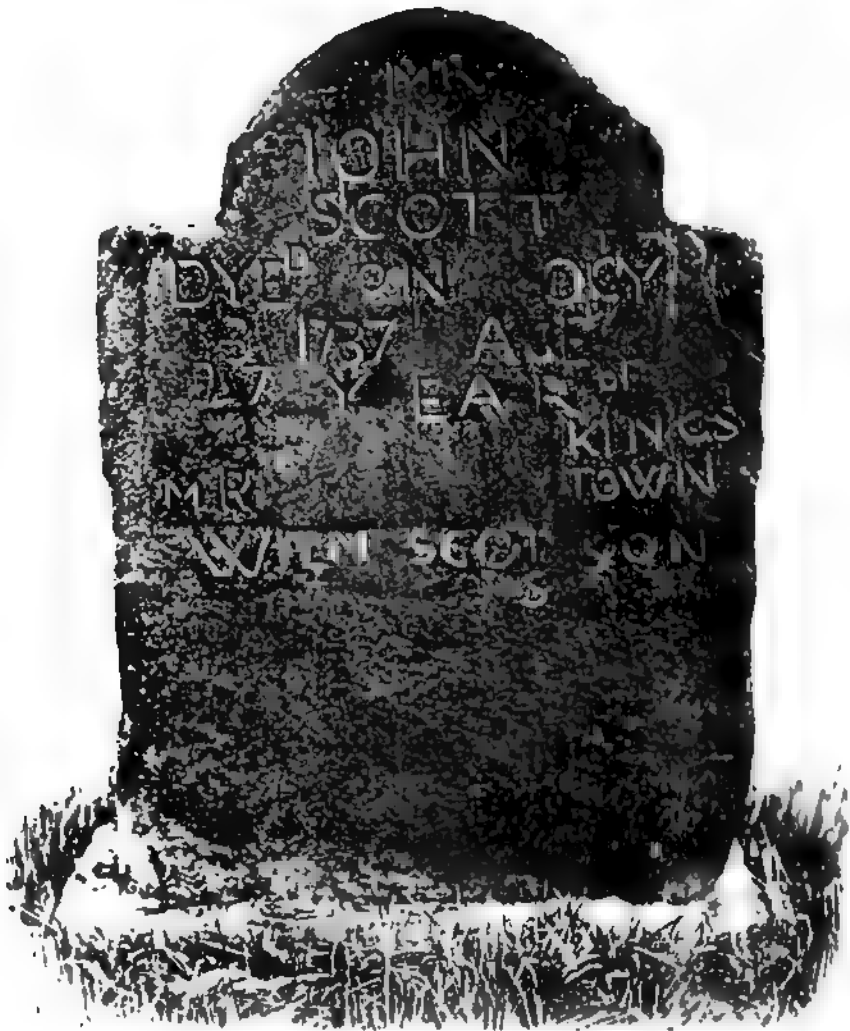 MR
IOHN
SCOTT
DYED ON
1737
27 YEAR OF
KINGS
MR TOWN
WILM SCOT SON